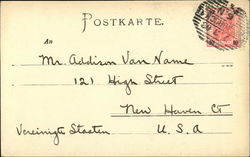 POSTKARTE.
An
Mr. Addison Van Name
121 High Street
New Haven Ct
Vereinigte Staaten U. S. A